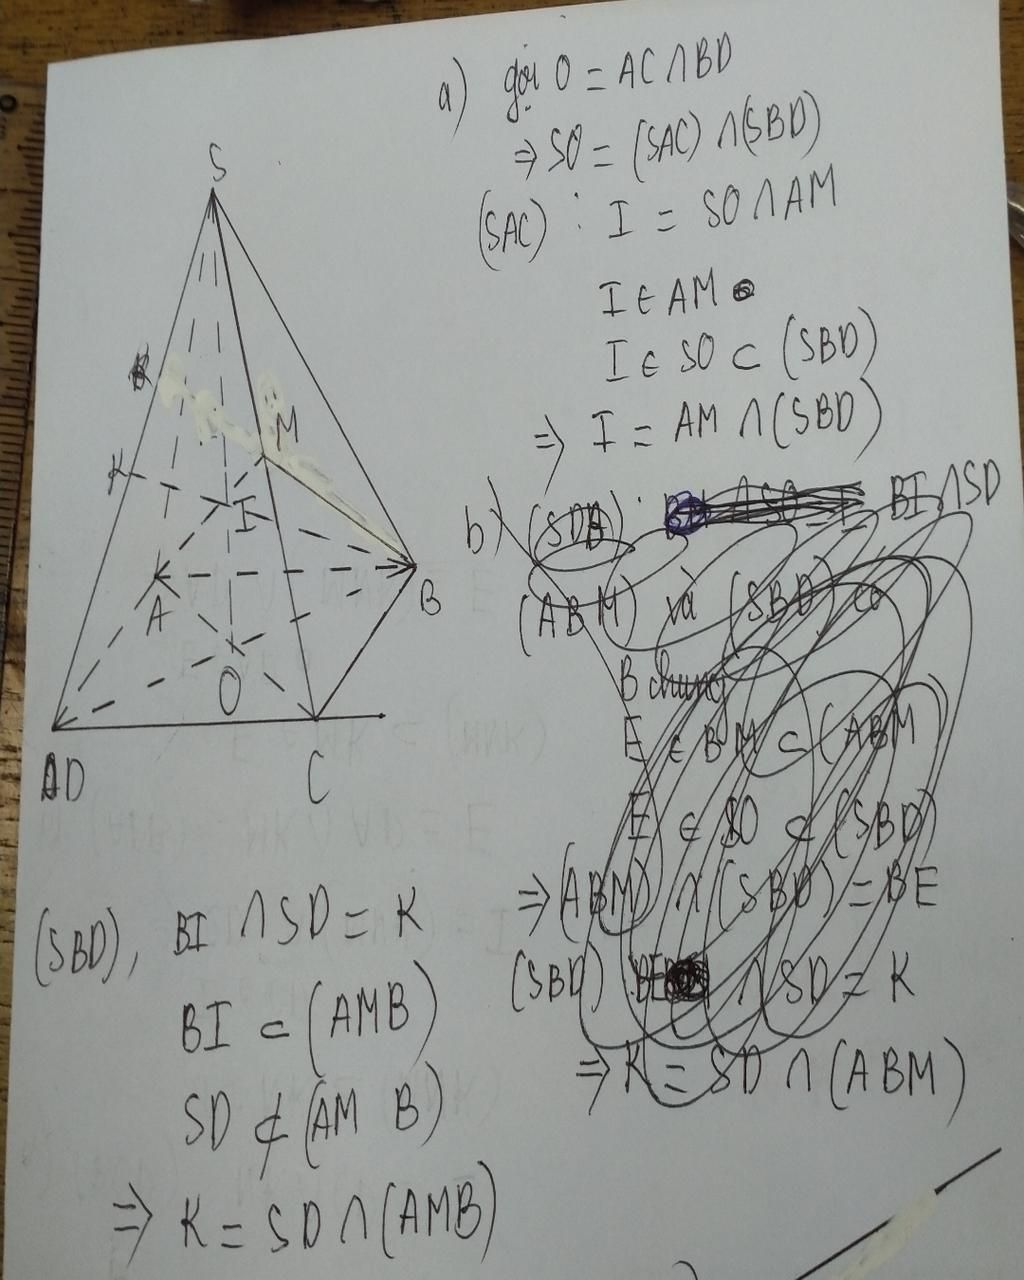 a) gọi O = AC ∩ BD
⇒ SO = (SAC) ∩ (SBD)
(SAC) : I = SO ∩ AM
I ∈ AM
I ∈ SO ⊂ (SBD)
⇒ I = AM ∩ (SBD)
S
M
K
I
A
B
O
D
C
b) (SDB) : BI ∩ SD
(ABM) và (SBD) có
B chung
E ∈ BM ⊂ (ABM
E ∈ SO ⊂ (SBD)
⇒ (ABM) ∩ (SBD) = BE
(SBD) BE ∩ SD = K
⇒ K = SD ∩ (ABM)
(SBD), BI ∩ SD = K
BI ⊂ (AMB)
SD ⊄ (AM B)
⇒ K = SD ∩ (AMB)